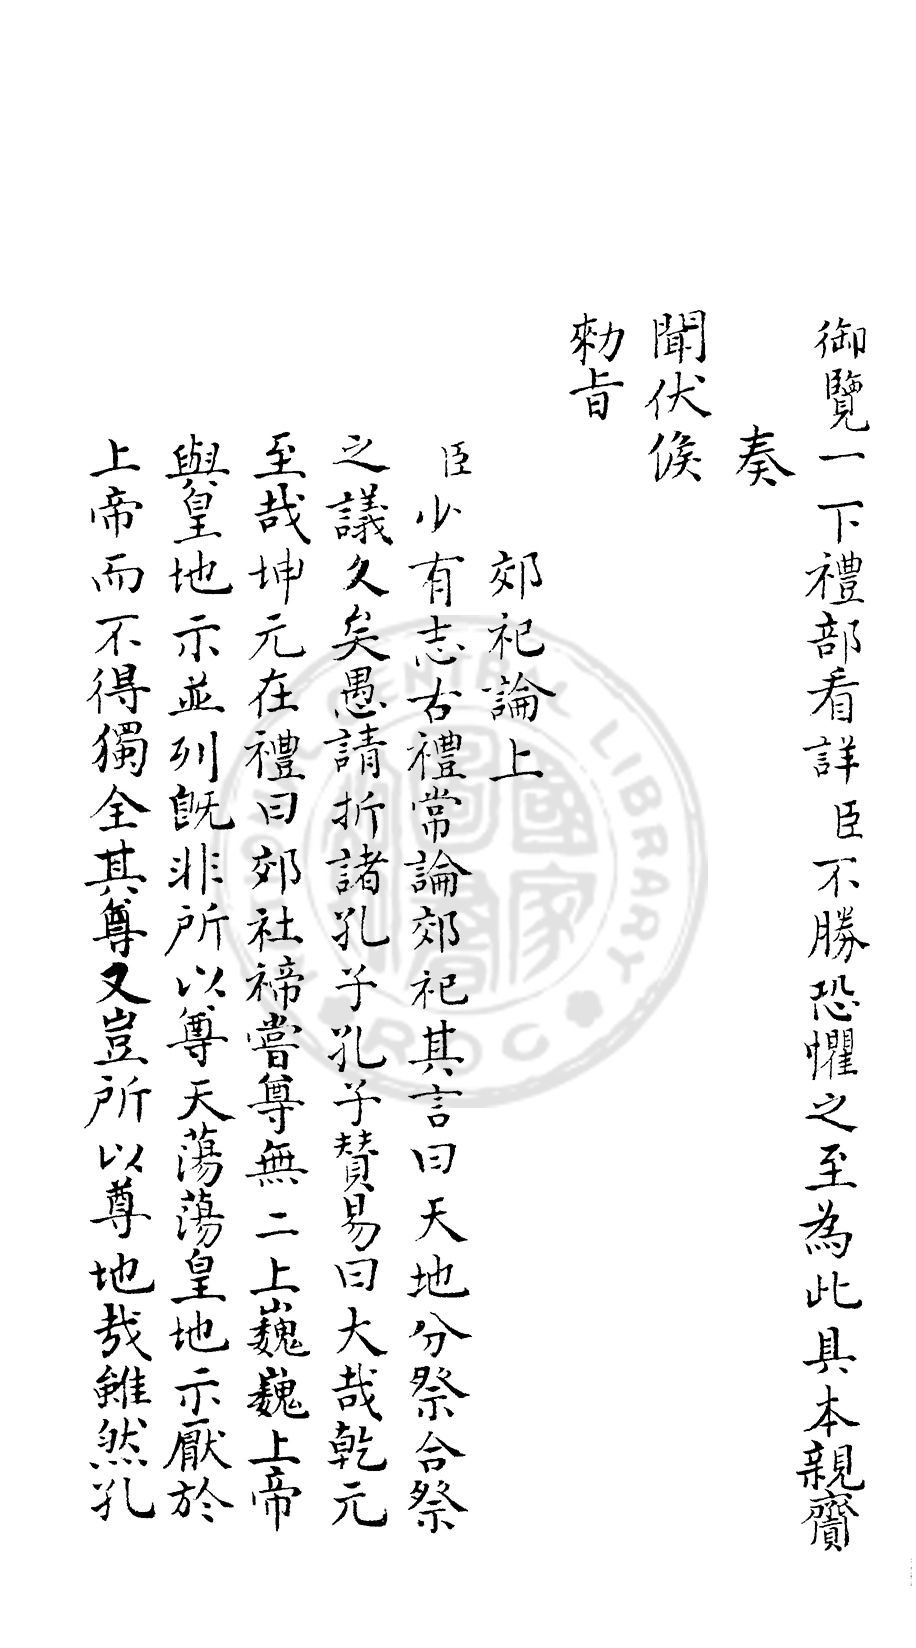 御覽一下禮部看詳臣不勝恐懼之至為此具本親齎
奏
聞伏候
勑旨
郊祀論上
臣少有志古禮常論郊祀其言曰天地分祭合祭
之議久矣愚請折諸孔子孔子贊易曰大哉乾元
至哉坤元在禮曰郊社禘嘗尊無二上巍巍上帝
與皇地示並列旣非所以尊天蕩蕩皇地示厭於
上帝而不得獨全其尊又豈所以尊地哉雖然孔
NATIONAL CENTRAL LIBRARY
ROC
國家圖書館